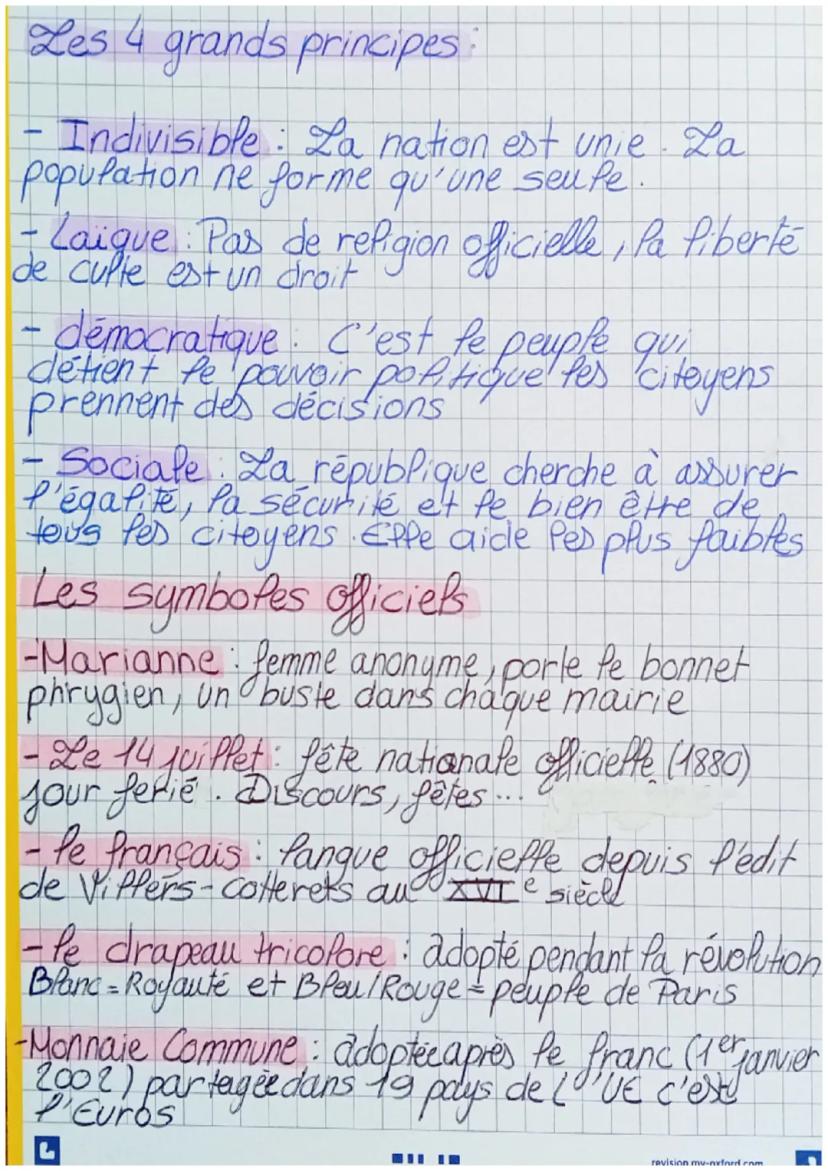 Les 4 grands principes :
- Indivisible : La nation est unie. La
population ne forme qu'une seule.
- Laïque : Pas de religion officielle, la liberté
de culte est un droit
- démocratique : C'est le peuple qui
détient le pouvoir politique les citoyens
prennent des décisions
- Sociale : La république cherche à assurer
l'égalité, la sécurité et le bien être de
tous les citoyens. Elle aide les plus faibles
Les symboles officiels
-Marianne : femme anonyme, porte le bonnet
phrygien, un buste dans chaque mairie
- Le 14 juillet : fête nationale officielle (1880)
Jour ferié. Discours, fêtes...
- le français : langue officielle depuis l'édit
de Villers-cotterets au XVIe siècle
- le drapeau tricolore : adopté pendant la révolution
Blanc = Royauté et Bleu/Rouge = peuple de Paris
-Monnaie Commune : adoptée après le franc (1er janvier
2002) partagée dans 19 pays de l'UE c'est
l'Euros
revision.my-oxford.com